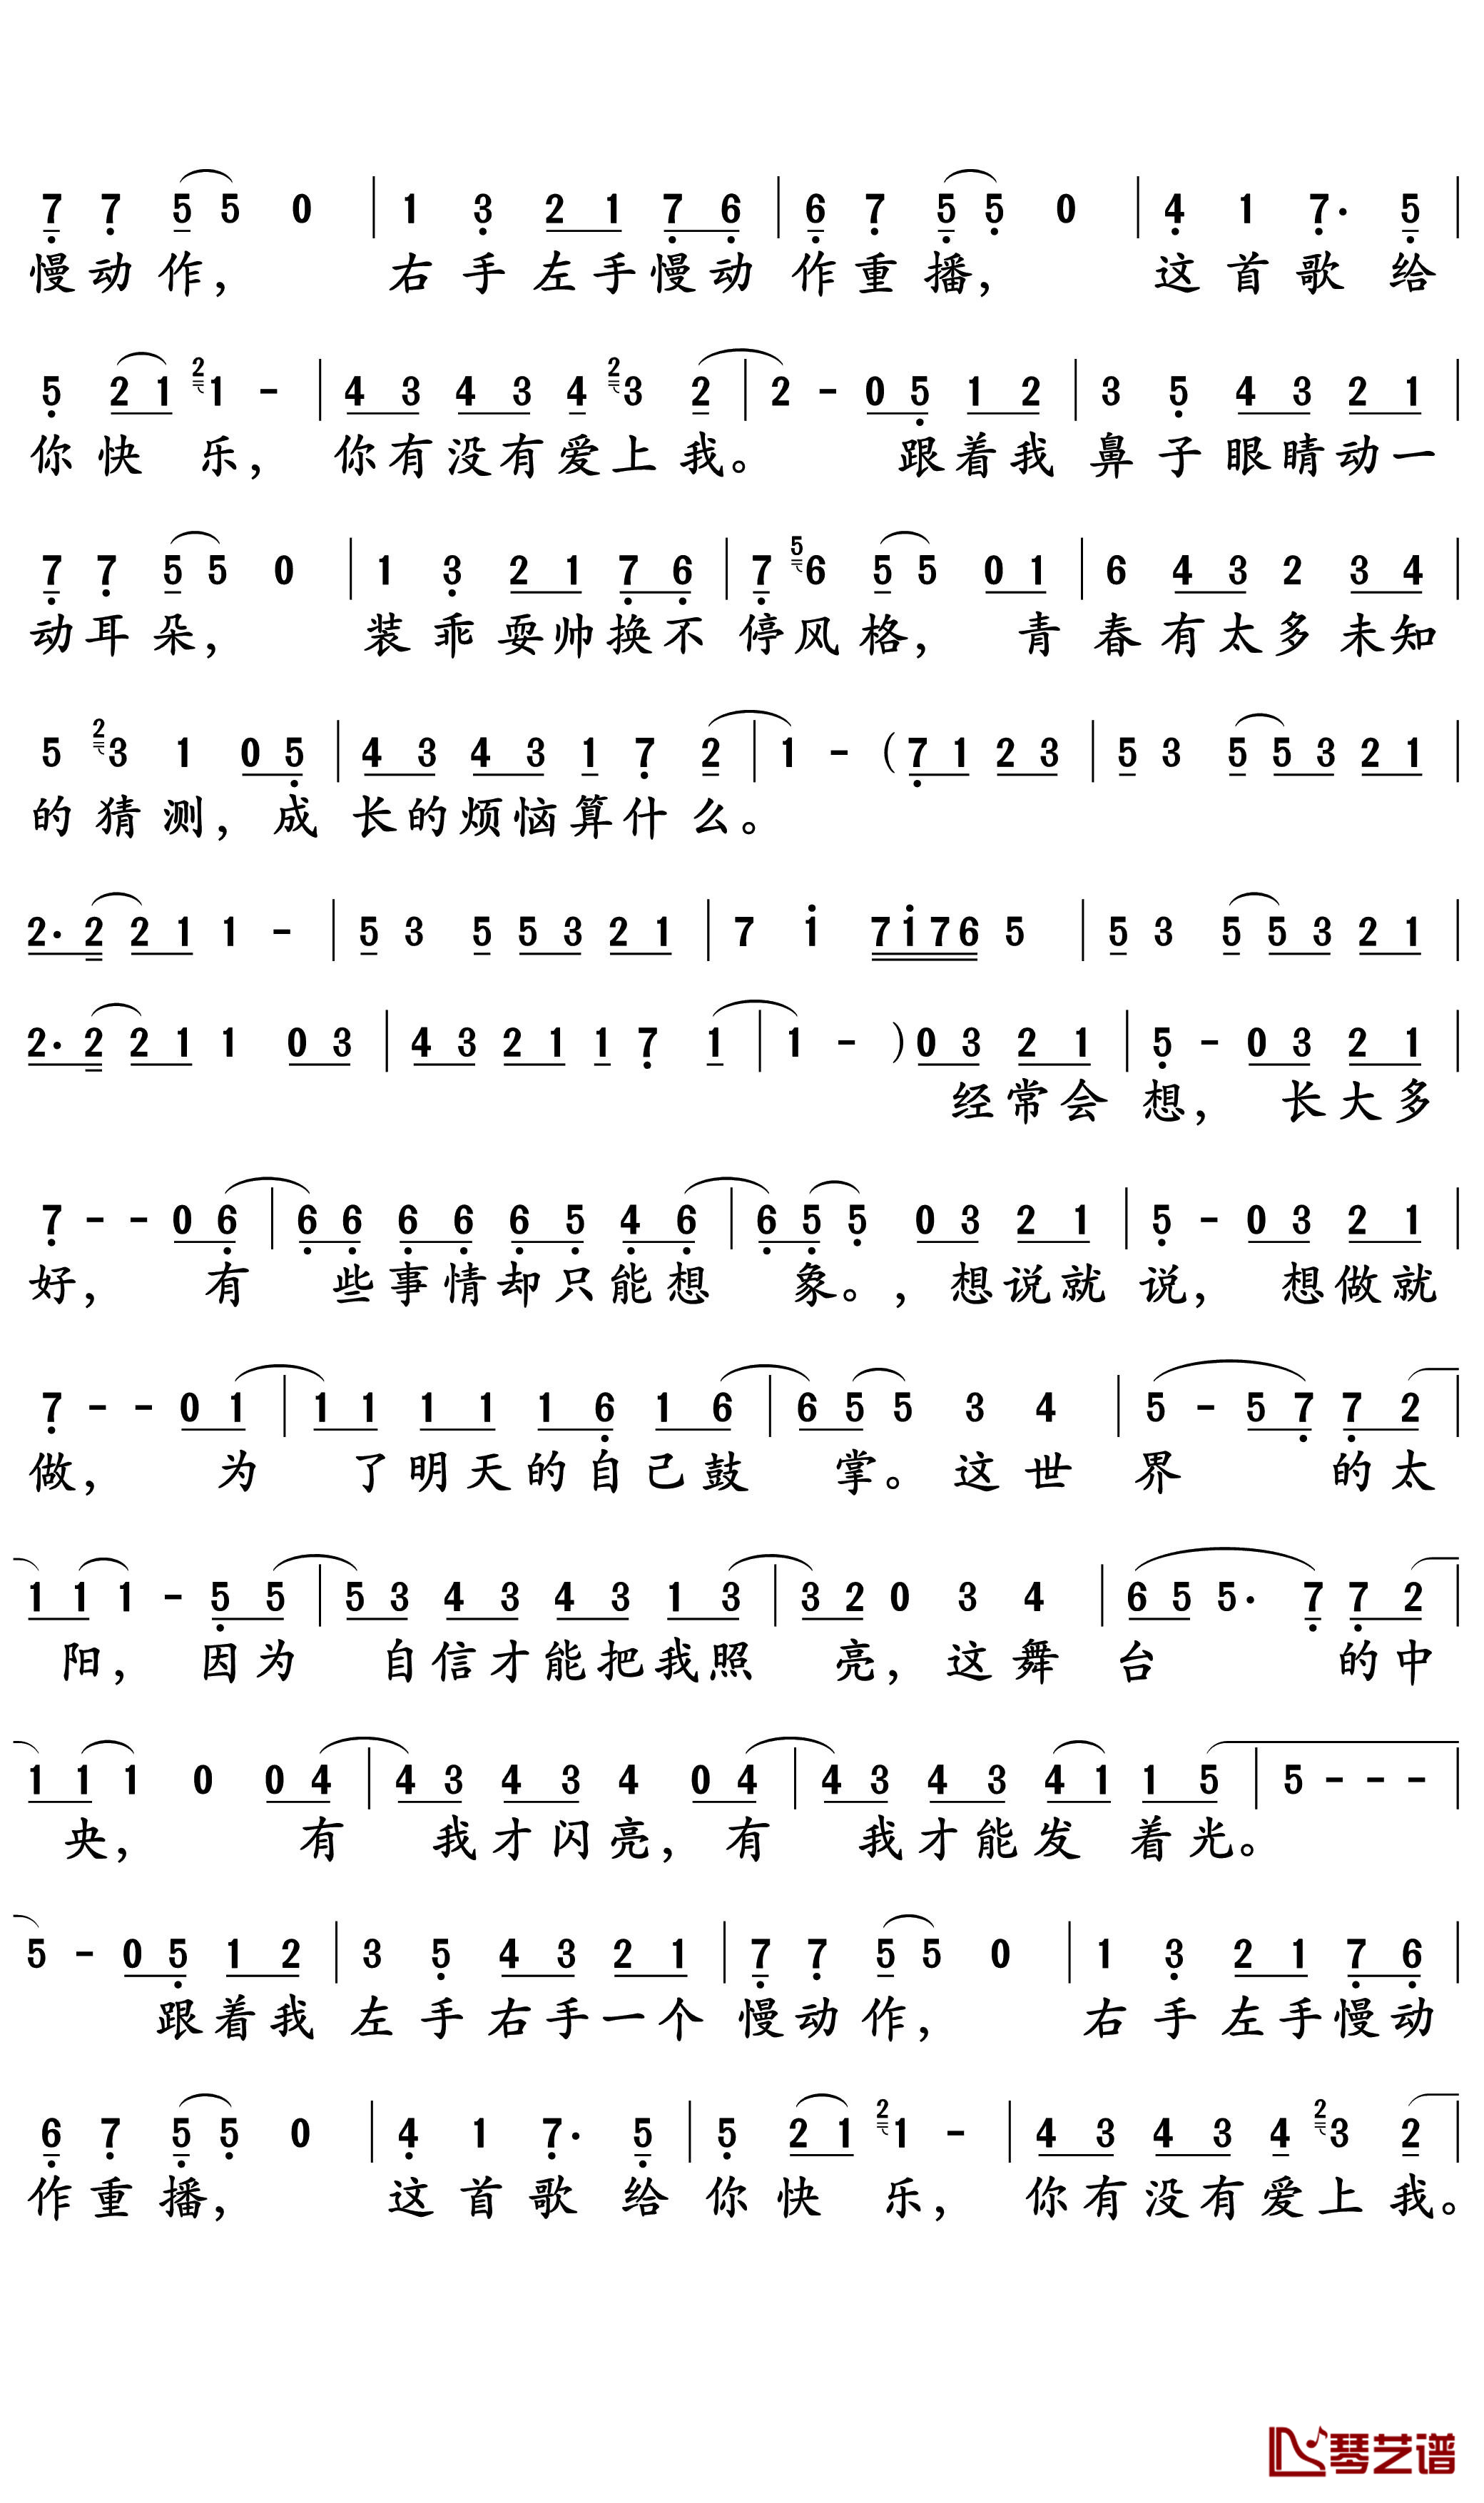 7 7 5 5 0 | 1 3 2 1 7 6 | 6 7 5 5 0 | 4 1 7· 5 |
慢动作， 右手左手慢动作重播， 这首歌给
5 2 1 2 1 - | 4 3 4 3 4 2 3 2 | 2 - 0 5 1 2 | 3 5 4 3 2 1 |
你快乐，你有没有爱上我。 跟着我鼻子眼睛动一
7 7 5 5 0 | 1 3 2 1 7 6 | 7 5 6 5 5 0 1 | 6 4 3 2 3 4 |
动耳朵， 装乖耍帅换不停风格， 青春有太多未知
5 2 3 1 0 5 | 4 3 4 3 1 7 2 | 1 - (7 1 2 3 | 5 3 5 5 3 2 1 |
的猜测，成长的烦恼算什么。
2· 2 2 1 1 - | 5 3 5 5 3 2 1 | 7 1 7 1 7 6 5 | 5 3 5 5 3 2 1 |
2· 2 2 1 1 0 3 | 4 3 2 1 1 7 1 | 1 - ) 0 3 2 1 | 5 - 0 3 2 1 |
经常会想， 长大多
7 - - 0 6 | 6 6 6 6 6 5 4 6 | 6 5 5 0 3 2 1 | 5 - 0 3 2 1 |
好， 有 些事情却只能想 象。，想说就说， 想做就
7 - - 0 1 | 1 1 1 1 1 6 1 6 | 6 5 5 3 4 | 5 - 5 7 7 2 |
做， 为 了明天的自己鼓 掌。这世界 的太
1 1 1 - 5 5 | 5 3 4 3 4 3 1 3 | 3 2 0 3 4 | 6 5 5· 7 7 2 |
阳， 因为 自信才能把我照 亮，这舞台 的中
1 1 1 0 0 4 | 4 3 4 3 4 0 4 | 4 3 4 3 4 1 1 5 | 5 - - - |
央， 有 我才闪亮，有 我才能发着光。
5 - 0 5 1 2 | 3 5 4 3 2 1 | 7 7 5 5 0 | 1 3 2 1 7 6 |
跟着我左手右手一个慢动作， 右手左手慢动
6 7 5 5 0 | 4 1 7· 5 | 5 2 1 2 1 - | 4 3 4 3 4 2 3 2 |
作重播， 这首歌给你快乐，你有没有爱上我。
琴艺谱